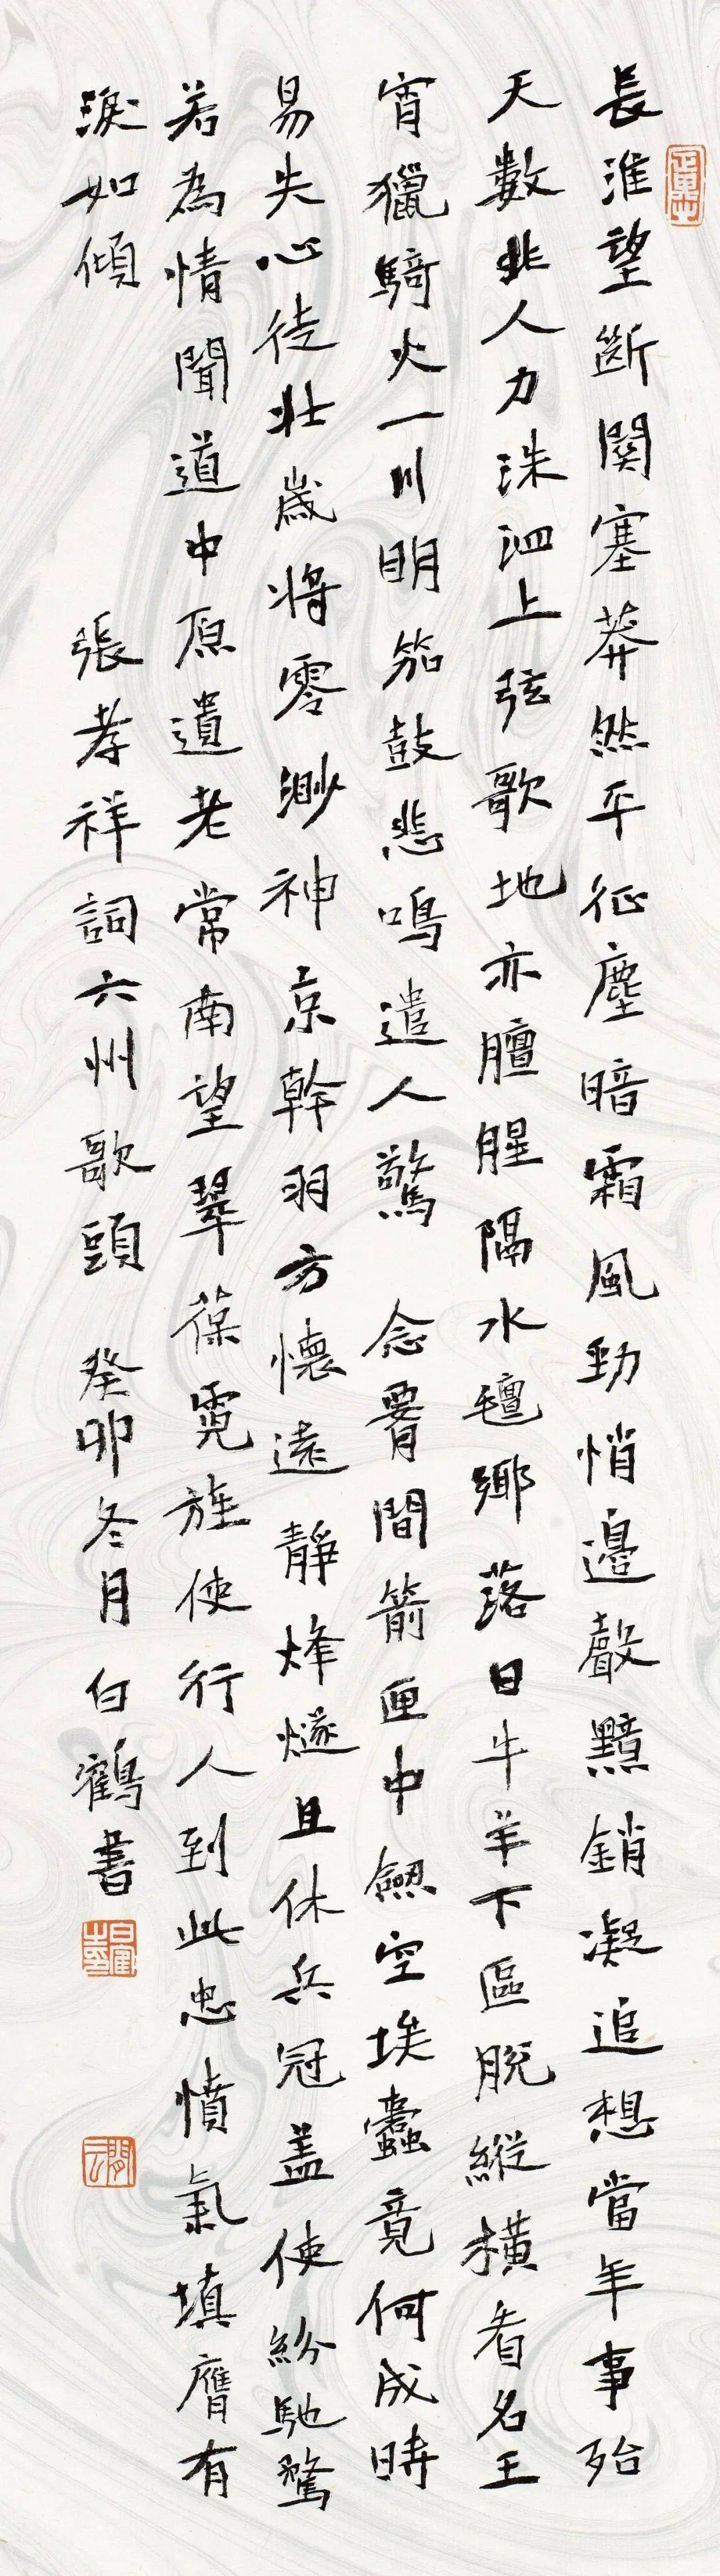 長淮望斷關塞莽然平征塵暗霜風勁悄邊聲黯銷凝追想當年事殆
天數非人力洙泗上弦歌地亦膻腥隔水氊鄉落日牛羊下區脫縱橫看名王
宵獵騎火一川明笳鼓悲鳴遣人驚 念腰間箭匣中劒空埃蠹竟何成時
易失心徒壯歲將零渺神京幹羽方懷遠靜烽燧且休兵冠盖使紛馳騖
若為情聞道中原遺老常南望翠葆霓旌使行人到此忠憤氣填膺有
淚如傾
張孝祥詞六州歌頭 癸卯冬月白鶴書